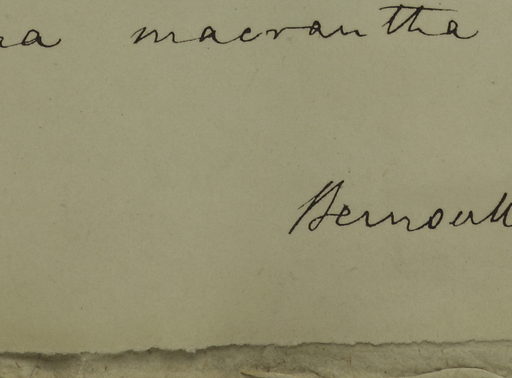 ra macrantha
Bernoull